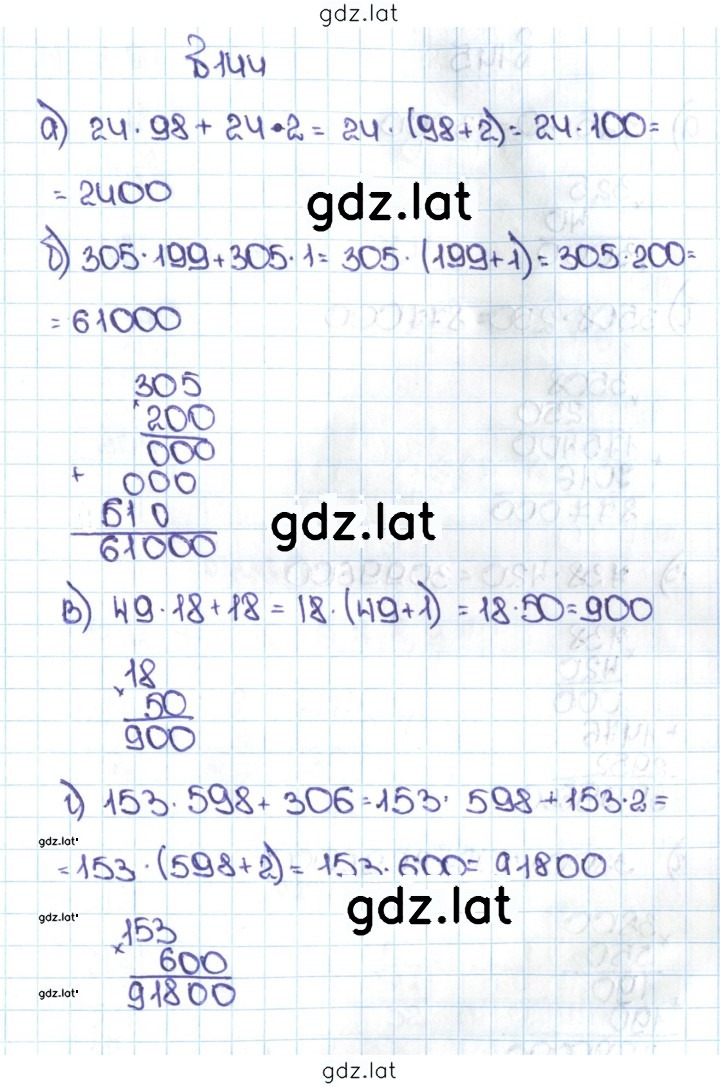 gdz.lat
В 144
а) 24 · 98 + 24 · 2 = 24 · (98+2) = 24 · 100 =
= 2400
gdz.lat
б) 305 · 199 + 305 · 1 = 305 · (199+1) = 305 · 200 =
= 61000
305
× 200
000
+ 000
610
61000
gdz.lat
в) 49 · 18 + 18 = 18 · (49+1) = 18 · 50 = 900
× 18
50
900
г) 153 · 598 + 306 = 153 · 598 + 153 · 2 =
gdz.lat
= 153 · (598+2) = 153 · 600 = 91800
gdz.lat
gdz.lat
× 153
600
gdz.lat
91800
gdz.lat